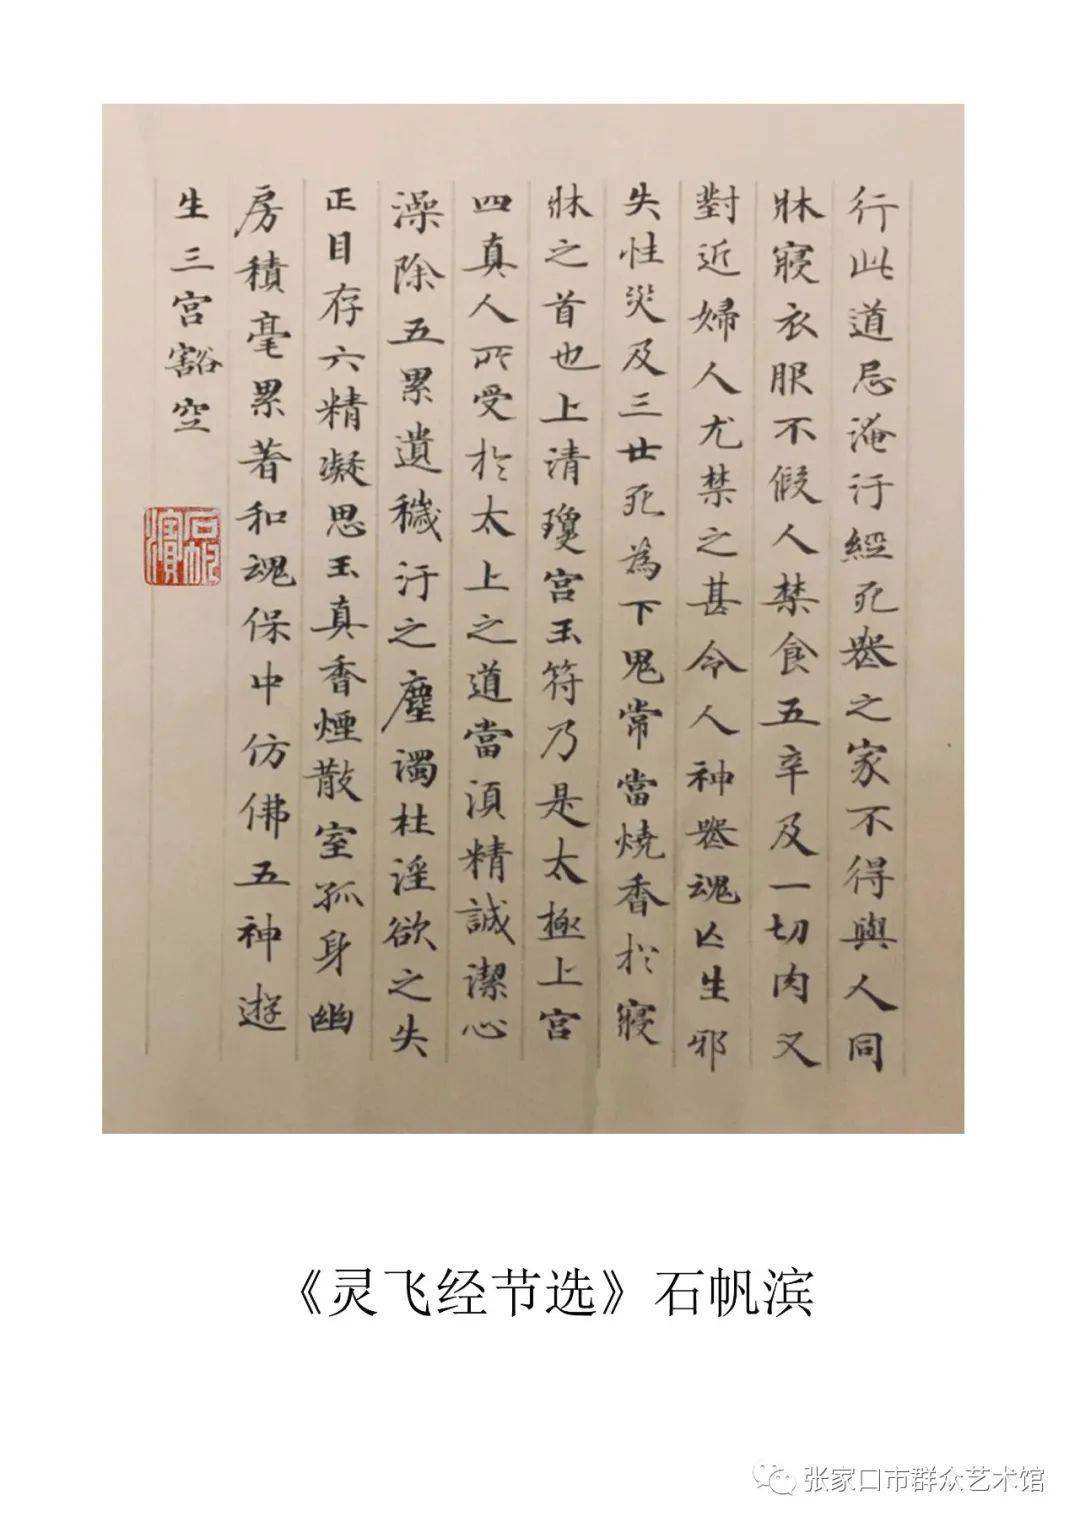 行此道忌淹汙經死喪之家不得與人同
牀寢衣服不假人禁食五辛及一切肉又
對近婦人尤禁之甚令人神喪魂亡生邪
失性災及三世死為下鬼常當燒香於寢
牀之首也上清瓊宮玉符乃是太極上宮
四真人所受於太上之道當須精誠潔心
澡除五累遺穢汙之塵濁杜淫欲之失
正目存六精凝思玉真香煙散室孤身幽
房積毫累著和魂保中仿佛五神遊
生三宮豁空
石帆濱
《灵飞经节选》石帆滨
张家口市群众艺术馆